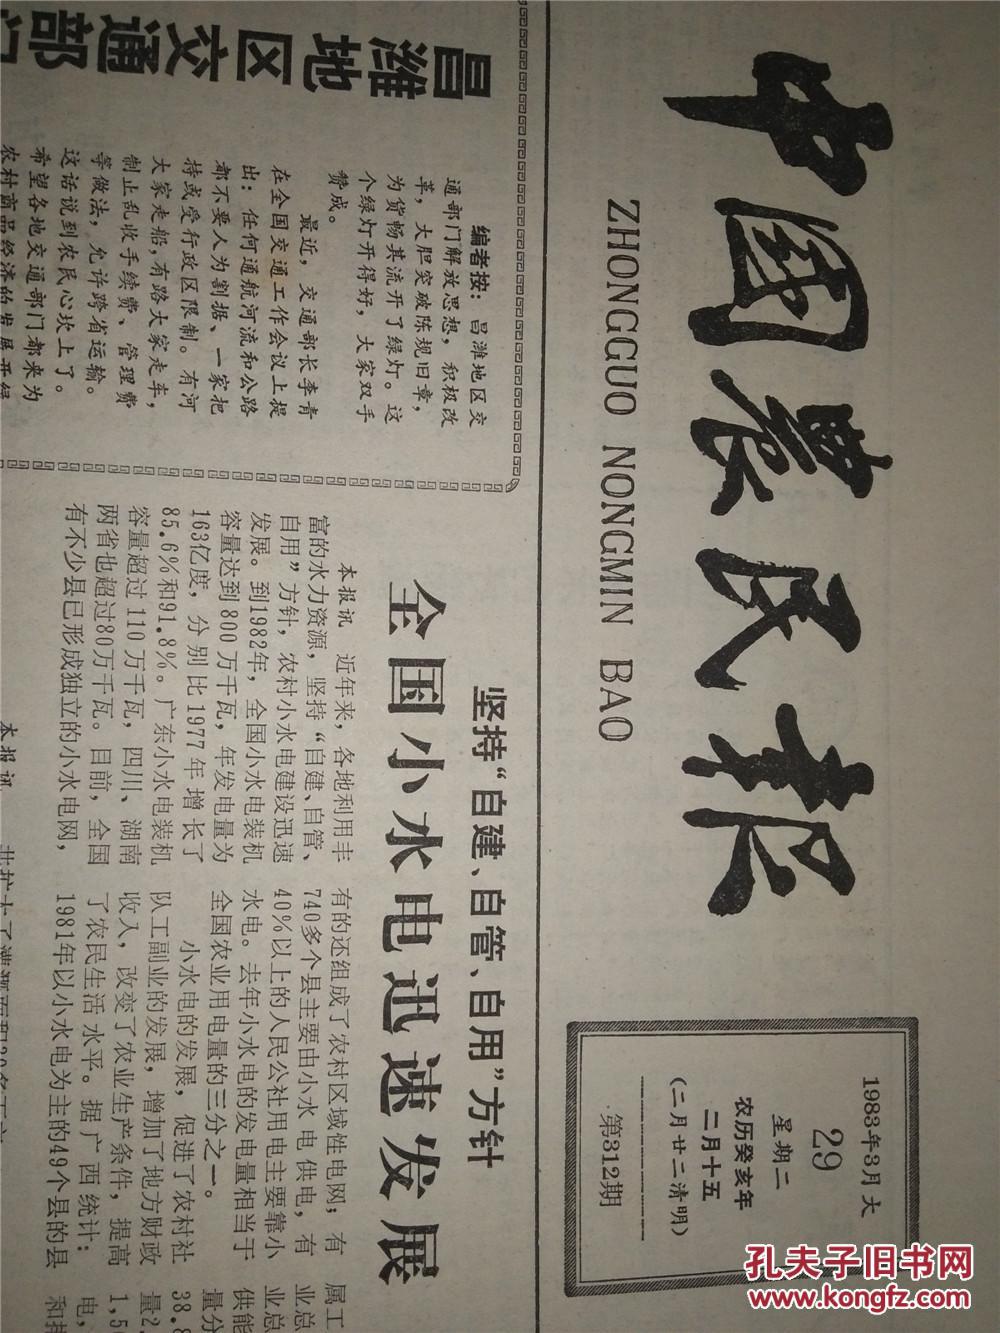 中國農民报
ZHONGGUO NONGMIN BAO
1983年3月大
29
星期二
农历癸亥年
二月十五
(二月廿二清明)
第312期
昌潍地区交通部门
编者按：昌潍地区交
通部门解放思想，积极改
革，大胆突破陈规旧章，
为货畅其流开了绿灯。这
个绿灯开得好，大家双手
赞成。
最近，交通部长李青
在全国交通工作会议上提
出：任何通航河流和公路
都不要人为割据、一家把
持或受行政区限制。有河
大家走船，有路大家走车，
制止乱收手续费、管理费
等做法，允许跨省运输。
这话说到农民心坎上了。
希望各地交通部门都来为
农村商品经济的发展开绿
坚持“自建、自管、自用”方针
全国小水电迅速发展
本报讯 近年来，各地利用丰
富的水力资源，坚持“自建、自管、
自用”方针，农村小水电建设迅速
发展。到1982年，全国小水电装机
容量达到800万千瓦，年发电量为
163亿度，分别比1977年增长了
85.6%和91.8%。广东小水电装机
容量超过110万千瓦，四川、湖南
两省也超过80万千瓦。目前，全国
有不少县已形成独立的小水电网，
有的还组成了农村区域性电网；有
740多个县主要由小水电供电，有
40%以上的人民公社用电主要靠小
水电。去年小水电的发电量相当于
全国农业用电量的三分之一。
小水电的发展，促进了农村社
队工副业的发展，增加了地方财政
收入，改变了农业生产条件，提高
了农民生活水平。据广西统计：
1981年以小水电为主的49个县的县
属工
业总
业总
供能
量分
38.8
量2.
1,50
电，
和排
本报讯
孔夫子旧书网
www.kongfz.com